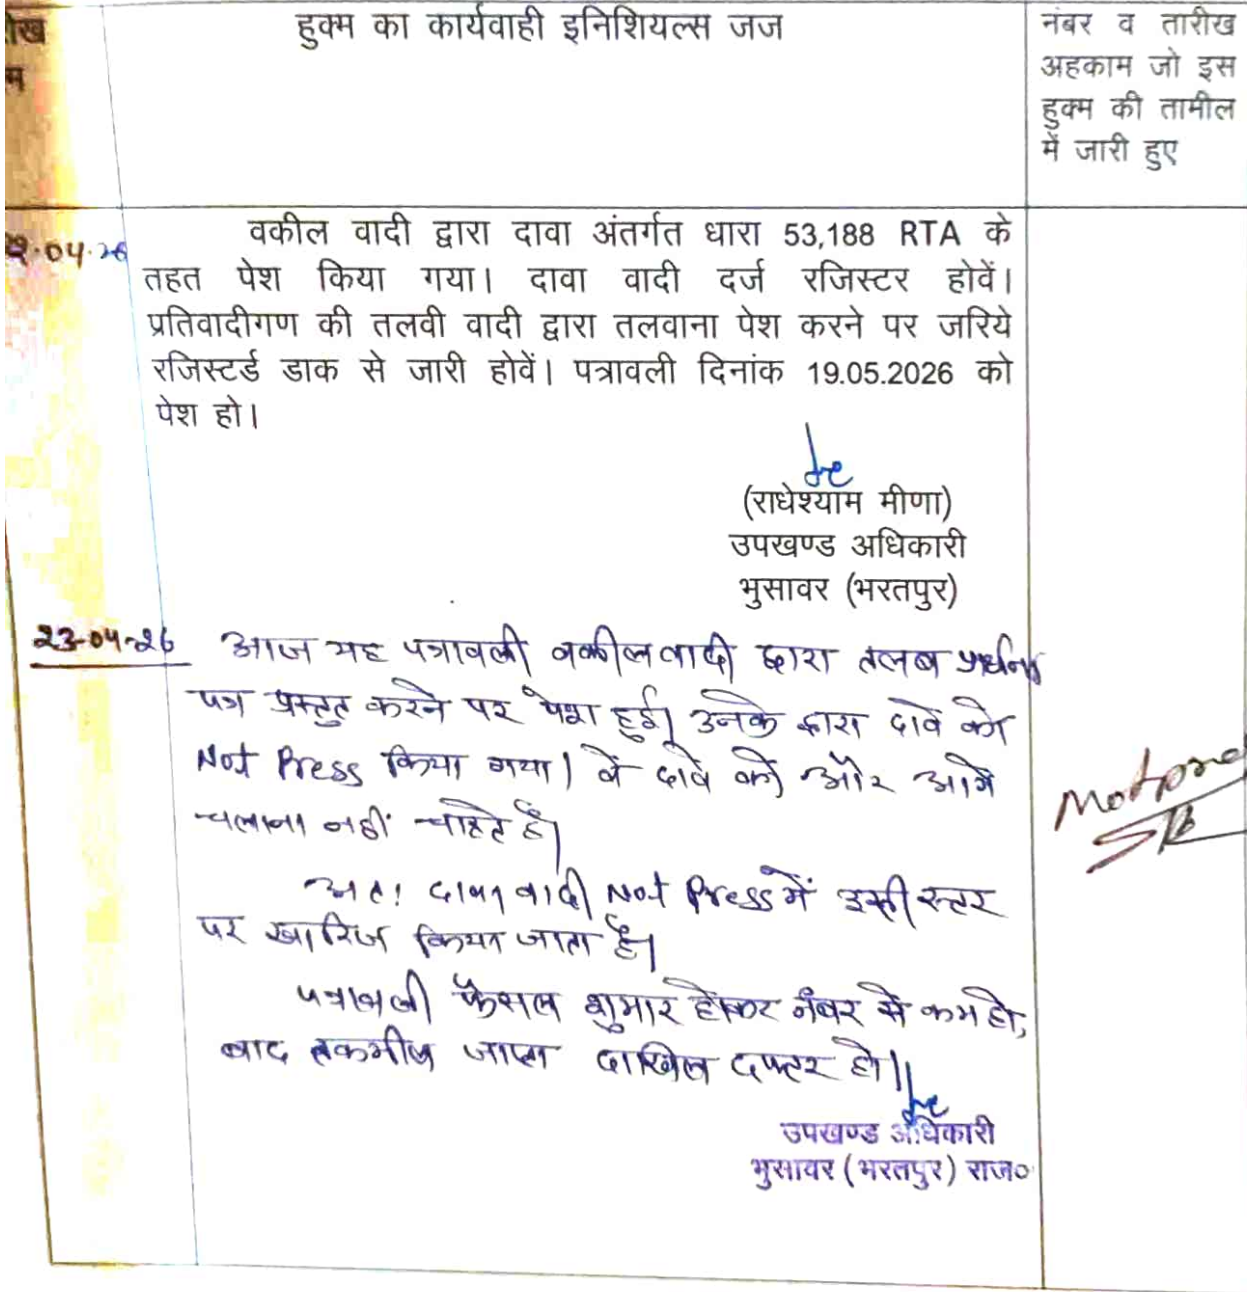 हुक्म का कार्यवाही इनिशियल्स जज
नंबर व तारीख
अहकाम जो इस
हुक्म की तामील
में जारी हुए
04.26
वकील वादी द्वारा दावा अंतर्गत धारा 53,188 RTA के
तहत पेश किया गया। दावा वादी दर्ज रजिस्टर होवें।
प्रतिवादीगण की तलवी वादी द्वारा तलवाना पेश करने पर जरिये
रजिस्टर्ड डाक से जारी होवें। पत्रावली दिनांक 19.05.2026 को
पेश हो।
(राधेश्याम मीणा)
उपखण्ड अधिकारी
भुसावर (भरतपुर)
23-04-26
आज यह पत्रावली वकील वादी द्वारा तलब प्रार्थना
पत्र प्रस्तुत करने पर पेश हुई। उनके द्वारा दावे को
Not Press किया गया। वे दावे को और आगे
चलाना नहीं चाहते है।
अतः दावा वादी Not Press में इसी स्तर
पर खारिज किया जाता है।
पत्रावली फैसल शुमार होकर नंबर से कम हो,
बाद तकमील जाप्ता दाखिल दफ्तर हो।
उपखण्ड अधिकारी
भुसावर (भरतपुर) राज०